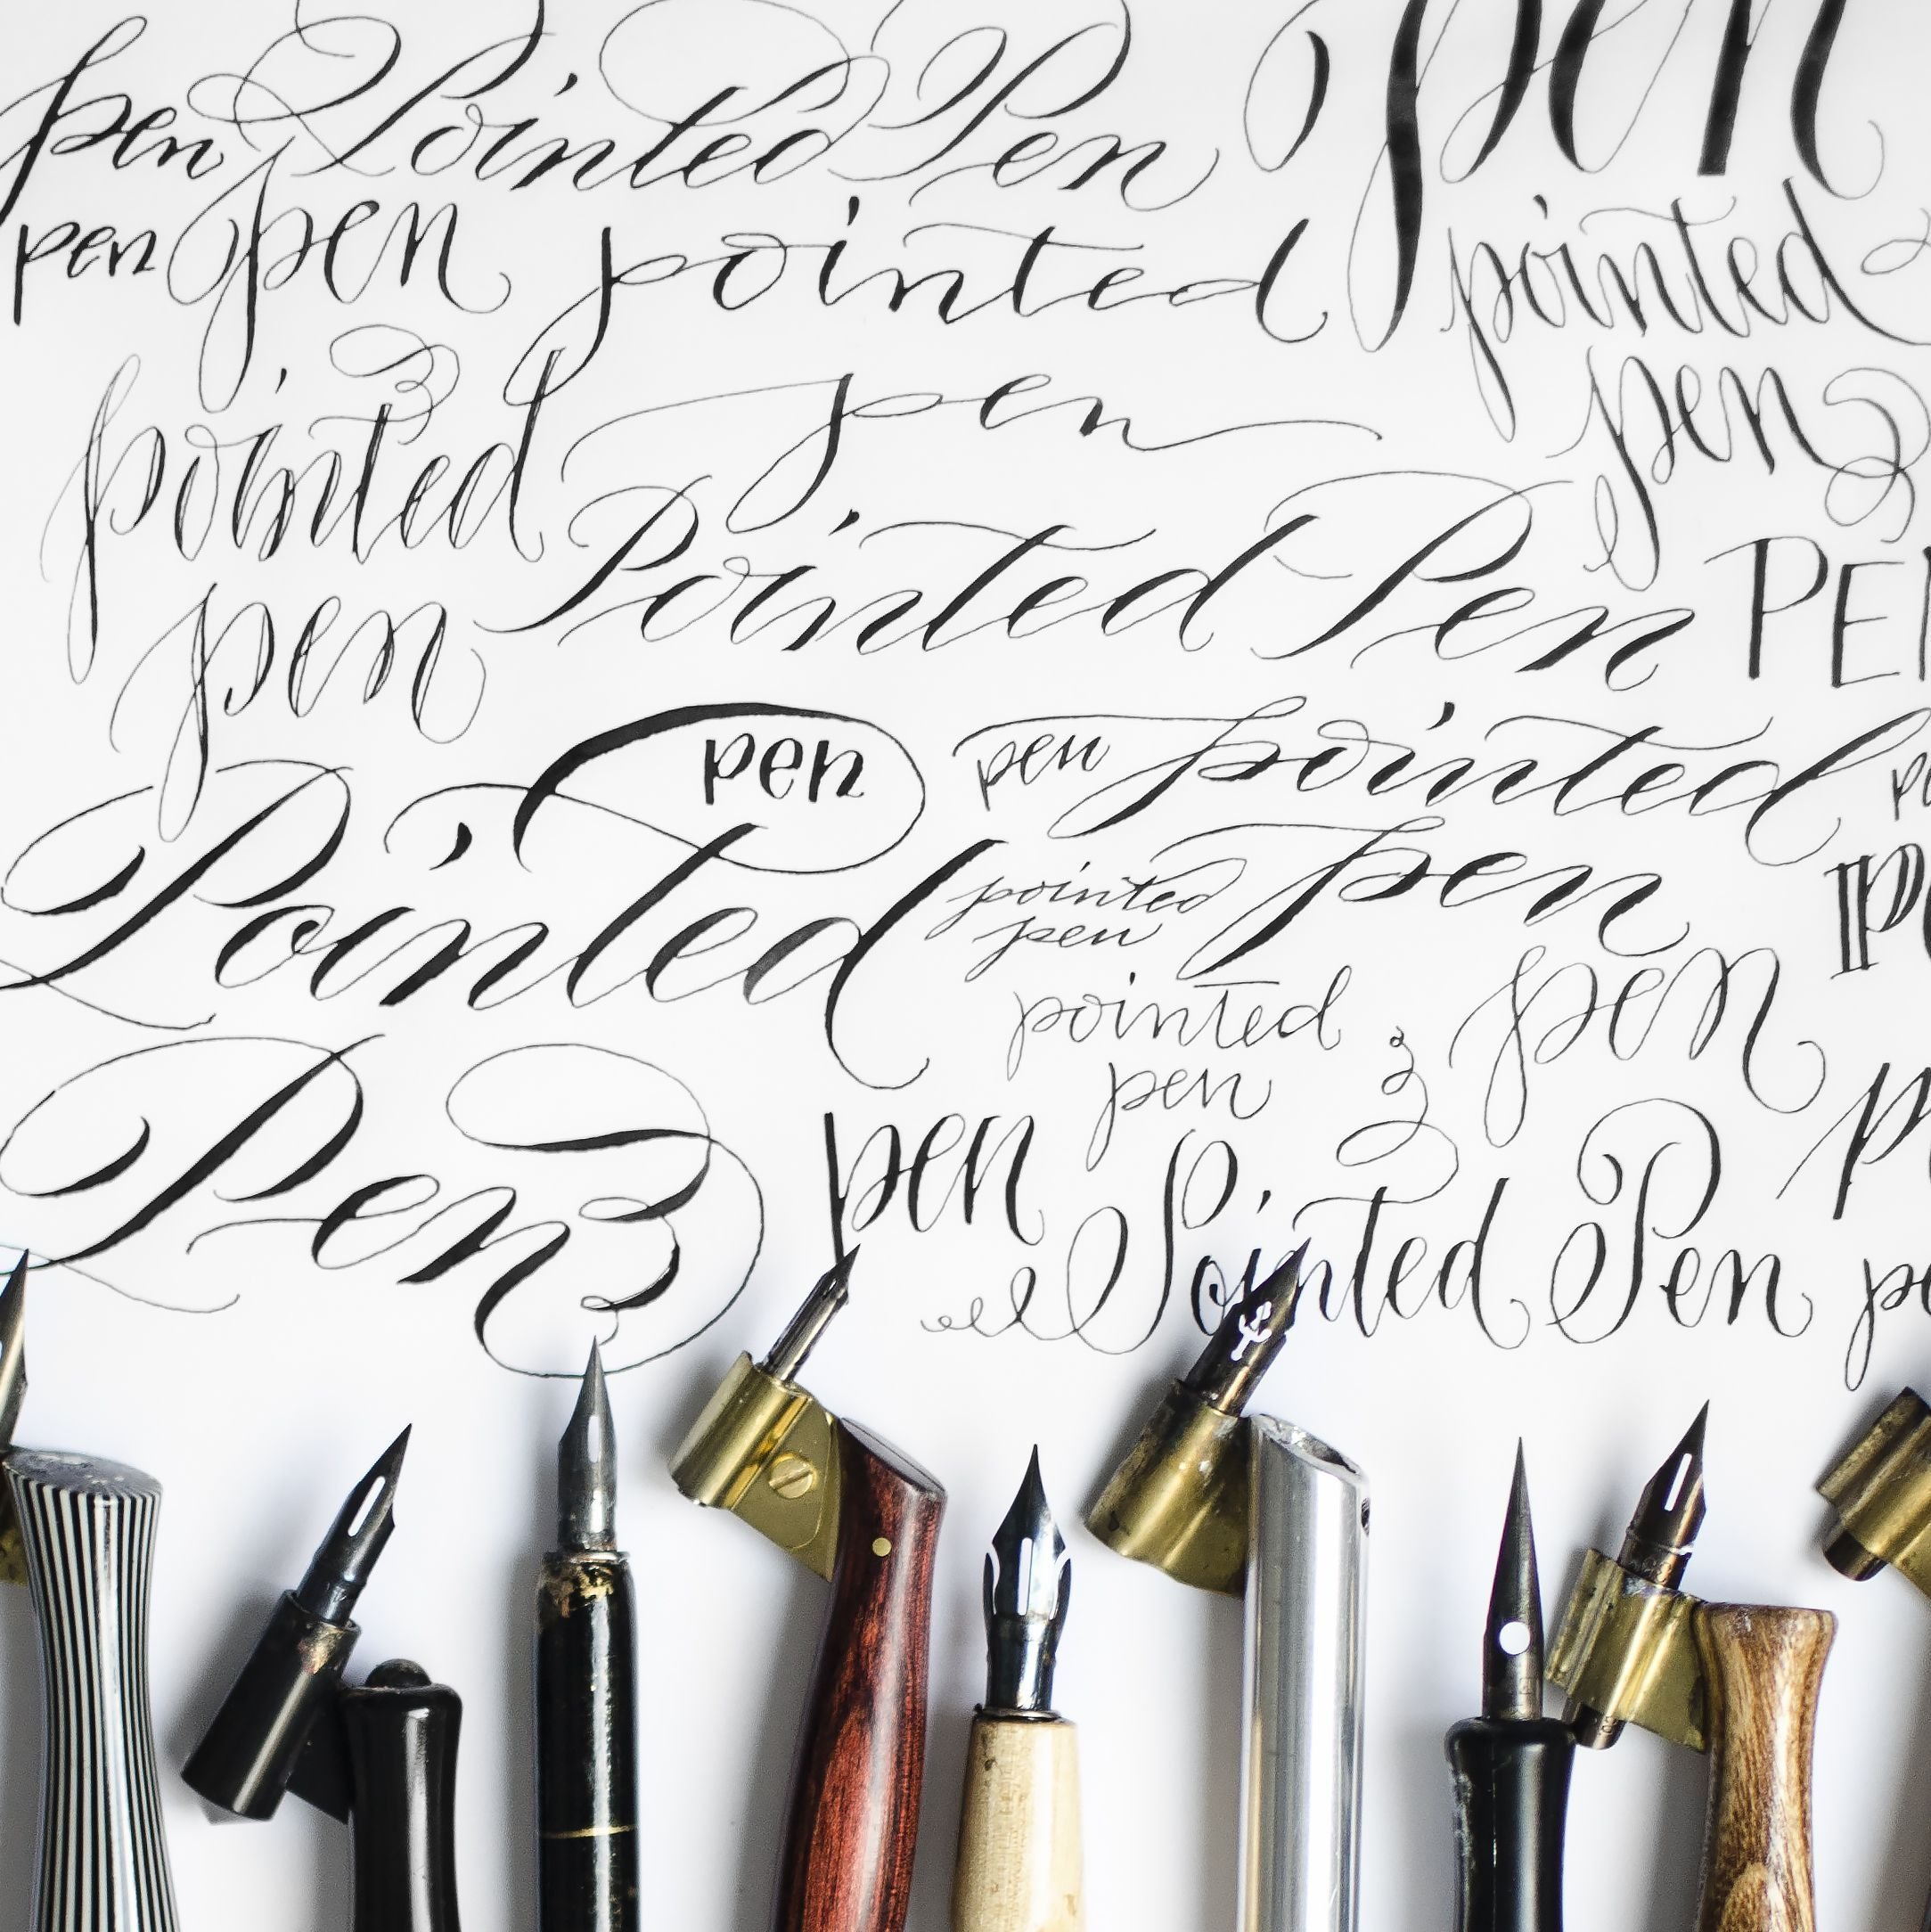 pen Pointed Pen pen
pen pen pointed pointed
pointed pen pen
Pointed Pen
pen
pen pen pointed
Pointed pointed pen
pen
pointed pen
pen
Pen pen
Pointed Pen